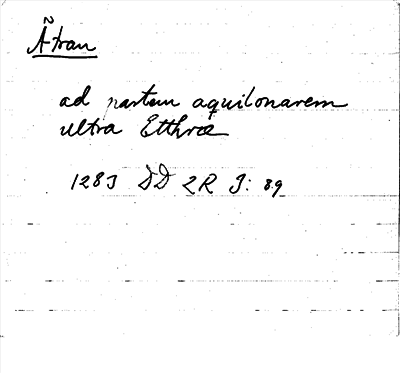 Ãtran
ad partem aquilonarem
ultra Etthræ
1283 DD 2R I: 89